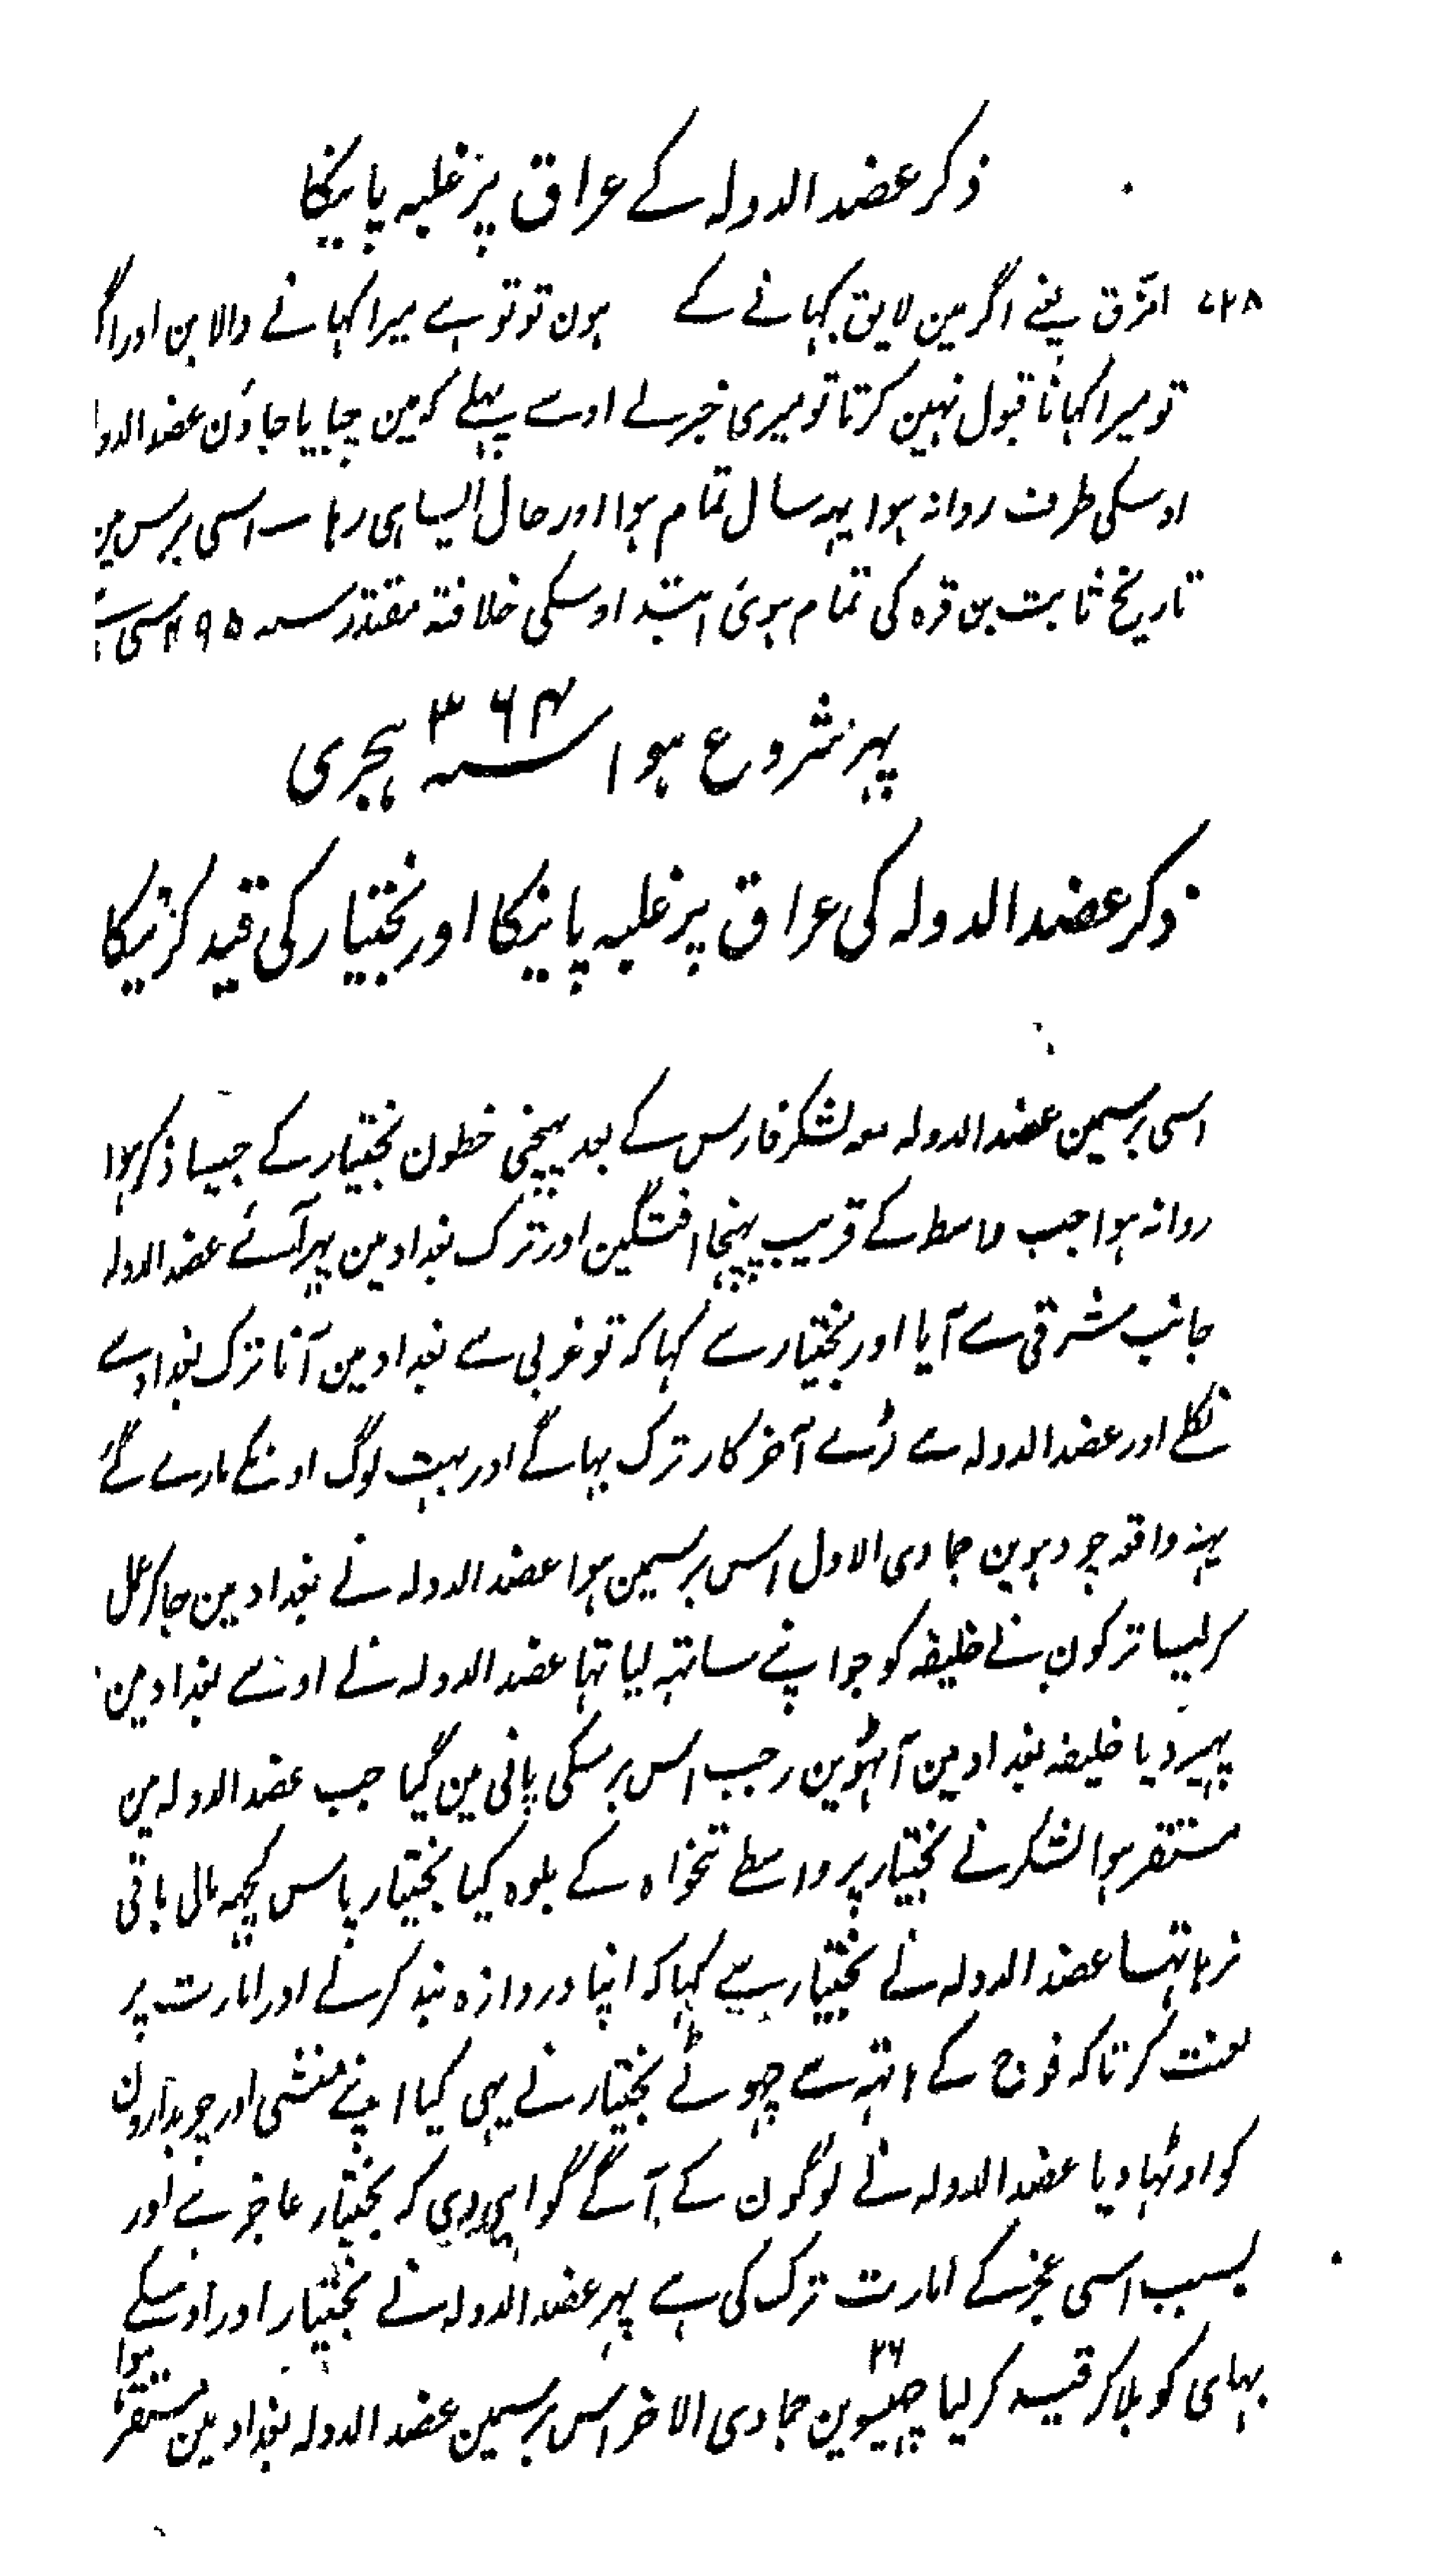 ذکر عضد الدولہ کے عراق پر غلبہ پانیکا
۷۲۸ امزق یعنے اگر مین لایق کہانے کے ہون تو تو ہے میرا کہانے والا بن اور اگر
تو میرا کہانا قبول نہین کرتا تو میری خبر لے اوسے پہلے کہ مین چبایا جاؤن عضد الدولہ
اوسکی طرف روانہ ہوا یہہ سال تمام ہوا اور حال ایسا ہی رہا۔ اسی برس مین
تاریخ ثابت بن قرہ کی تمام ہوئی ابتدا اوسکی خلافتہ مقتدر سنہ ۲۹۵ سی
پہر شروع ہوا سنہ ۳۶۴ ہجری
ذکر عضد الدولہ کی عراق پر غلبہ پانیکا اور بختیار کی قید کرنیکا
اسی برسمین عضد الدولہ معہ لشکر فارس کے بعد پہنچنی خطون بختیار کے جیسا ذکر ہوا
روانہ ہوا جب واسط کے قریب پہنچا افتگین اور ترک بغداد مین پہر آئے عضد الدولہ
جانب مشرقی سے آیا اور بختیار سے کہا کہ تو غربی سے بغداد مین آنا ترک بغداد سے
نکلے اور عضد الدولہ سے لڑے آخر کار ترک بہاگے اور بہت لوگ اونکے مارے گئے
یہہ واقعہ چودہوین جمادی الاول اس برسمین ہوا عضد الدولہ نے بغداد مین جا کر عمل
کر لیا ترکون نے خلیفہ کو جو اپنے ساتہہ لیا تہا عضد الدولہ نے اوسے بغداد مین
پہیر دیا خلیفہ بغداد مین آٹہوین رجب اس برسکی پانی مین گیا جب عضد الدولہ مین
مستقر ہوا لشکر نے بختیار پر واسطے تنخواہ کے بلوہ کیا بختیار پاس کچہہ مال باقی
نرہا تہا عضد الدولہ نے بختیار سے کہا کہ اپنا دروازہ بند کر لے اور امارت پر
لعنت کر تا کہ فوج کے ہاتہہ سے چہوٹے بختیار نے یہی کیا اپنے منشی اور چوبدارون
کو اوٹہا دیا عضد الدولہ نے لوگون کے آگے گواہی دی کہ بختیار عاجز ہے اور
بسبب اسی عجز کے امارت ترک کی ہے پہر عضد الدولہ نے بختیار اور اوسکے
بہای کو بلا کر قید کر لیا چہبیسوین ۲۶ جمادی الاخر اس برسمین عضد الدولہ بغداد مین مستقر ہوا